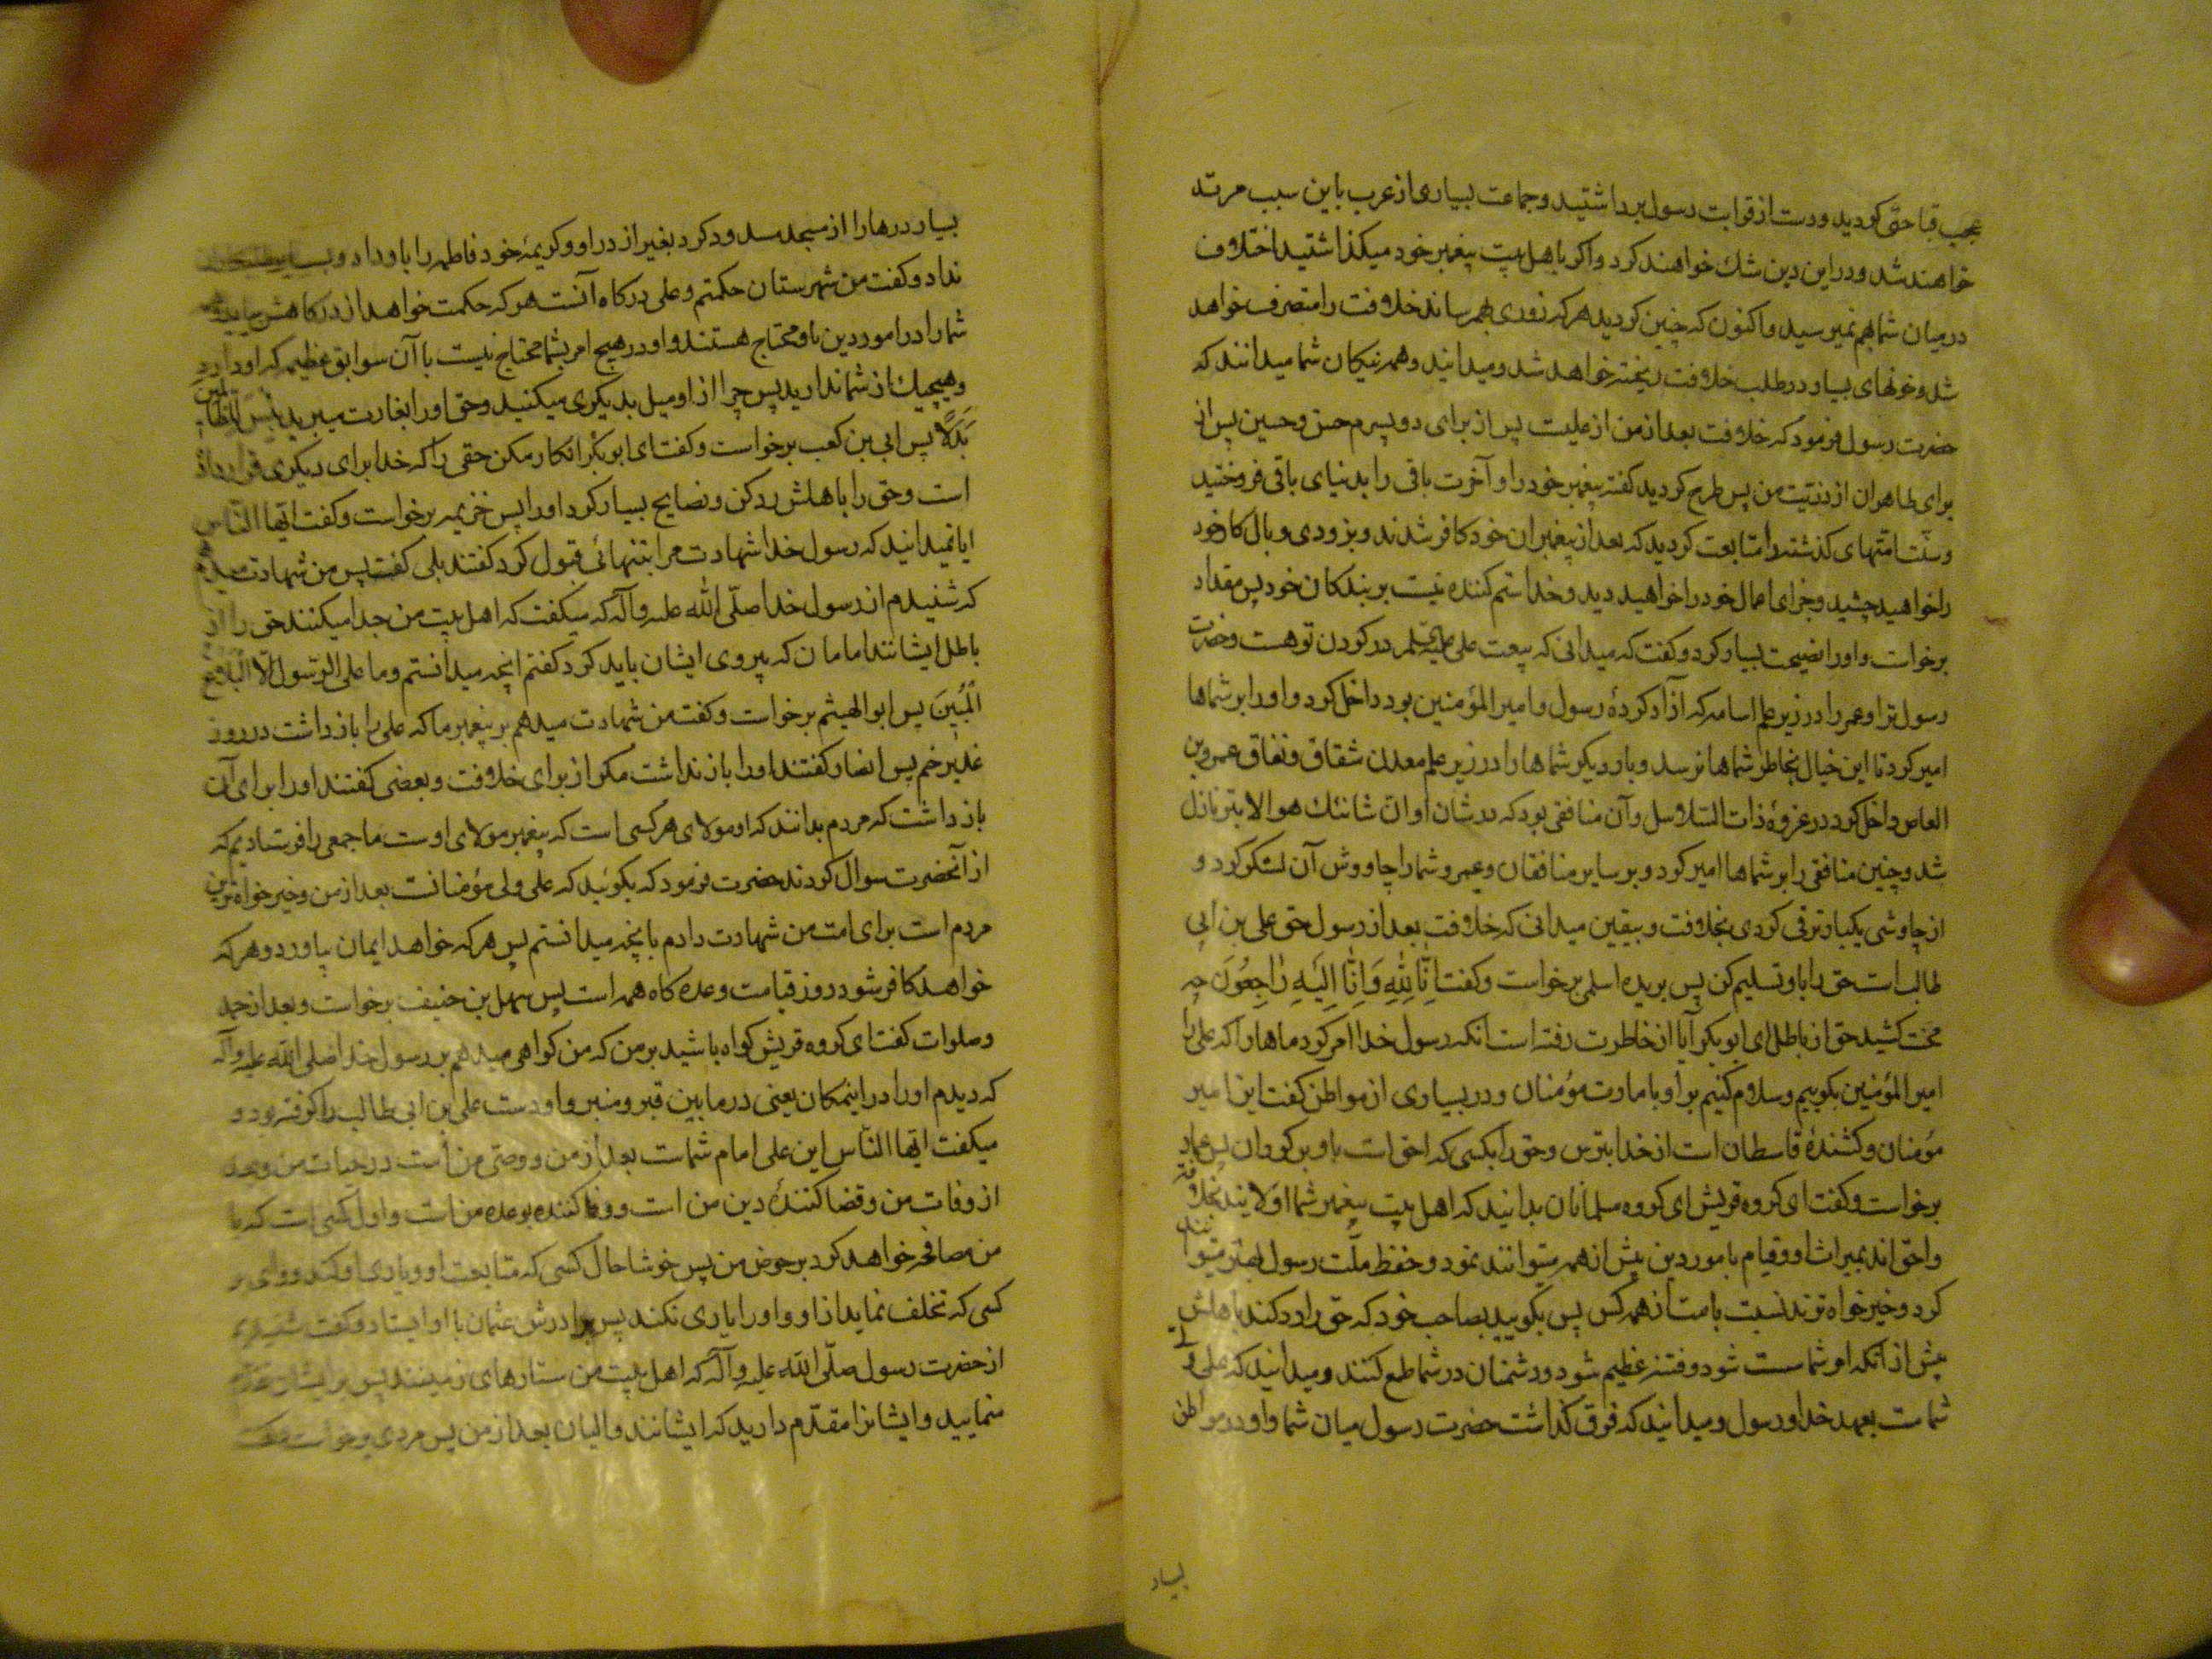 عجب قباحتی کردید و دست از قرابت رسول برداشتید و جماعت بسیاری از عرب باین سبب مرتد
خواهند شد و در این دین شک خواهند کرد و اگر باهل بیت پیغمبر خود میگذاشتید اختلاف
در میان شما بهم نمیرسید و اکنون که چنین کردید هر که زوری بهم رساند خلافت را متصرف خواهد
شد و خونهای بسیار در طلب خلافت ریخته خواهد شد و میدانید و همه نیکان شما میدانند که
حضرت رسول فرمود که خلافت بعد از من از علیست پس از برای دو پسرم حسن و حسین پس از
برای طاهران از ذریّت من پس طرح کردید گفته پیغمبر خود را و آخرت باقی را بدنیای باقی فروختید
و سنّت امّتهای گذشته را متابعت کردید که بعد از پیغمبران خود کافر شدند و بزودی وبال کار خود
را خواهید چشید و جزای اعمال خود را خواهید دید و خدا ستم کننده نیست بر بندگان خود پس مقداد
برخواست و او را نصیحت بسیار کرد و گفت که میدانی که بیعت علی علیه السلم در گردن تو هست و حضرت
رسول ترا و عمر را در زیر علم اسامه که آزاد کردهٔ رسول و امیر المؤمنین بود داخل کرد و او را بر شماها
امیر کرد تا این خیال بخاطر شماها نرسد و بار دیگر شماها را در زیر علم معدن شقاق و نفاق عمرو بن
العاص داخل کرد در غزوهٔ ذات السلاسل و آن منافقی بود که در شان او انّ شانئک هو الابتر نازل
شد و چنین منافقی را بر شماها امیر کرد و بر سایر منافقان و عمرو شما را چاووش آن لشکر کرد و
از چاوشی یکبار ترقی کردی بخلافت و بیقین میدانی که خلافت بعد از رسول حق علی بن ابی
طالب است حق را باو تسلیم کن پس بریده اسلمی برخواست و گفت اِنّا لِلّٰهِ وَاِنّا اِلَیهِ رٰاجِعُونَ چه
محنت کشید حق از باطل ای ابو بکر آیا از خاطرت رفته است انکه رسول خدا امر کرد ماها را که علی را
امیر المؤمنین بگوییم و سلام کنیم بر او بامارت مؤمنان و در بسیاری از مواطن گفت این امیر
مؤمنان و کشندهٔ قاسطان است از خدا بترس و حق را بکسی که احق است باو برگردان پس عمار
برخواست و گفت ای گروه قریش ای گروه مسلمانان بدانید که اهل بیت پیغمبر شما اولایند بخلافت
و احق اند بمیراث او و قیام بامور دین بیش از همه میتوانند نمود و حفظ ملّت رسول بهتر میتوانند
کرد و خیر خواه ترند نسبت بامت از همه کس پس بگویید بصاحب خود که حق را رد کند باهلش
پیش از آنکه امر شما سست شود و فتنه عظیم شود و دشمنان در شما طمع کنند و میدانید که علی ولی
شماست بعهد خدا و رسول و میدانید که فرق گذاشت حضرت رسول میان شما و او در مواطن
بسیار
بسیار درها را از مسجد مسدود کرد بغیر از در او و کریمهٔ خود فاطمه را باو داد و
نداد و گفت من شهرستان حکمتم و علی درگاه آنست هر که حکمت خواهد از درگاهش بیاید
شما را در امور دین باو محتاج هستند و او در هیچ امر بشما محتاج نیست با آن سوابق عظیمه که او دارد
و هیچیک از شما ندارید پس چرا از او میل بدیگری میکنید و حق او را بغارت میبرید بئس للظالمین
بَدَلًا پس ابی بن کعب برخواست و گفت ای ابو بکر انکار مکن حقی را که خدا برای دیگری قرار داده
است و حق را باهلش رد کن و نصایح بسیار کرد او را پس خزیمه برخواست و گفت ایّها النّاس
ایا نمیدانید که رسول خدا شهادت مرا بتنهائی قبول کرد گفتند بلی گفت پس من شهادت میدهم
که شنیدم از رسول خدا صلّی الله علیه وآله که میگفت که اهل بیت من جدا میکنند حق را از
باطل ایشانند امامان که پیروی ایشان باید کرد گفتم آنچه میدانستم و ما علی الرّسول الّا البَلاغ
المُبینَ پس ابو الهیثم برخواست و گفت من شهادت میدهم بر پیغمبر ما که علی را باز داشت در روز
غدیر خم پس انصار گفتند او را باز نداشت مگر از برای خلافت و بعضی گفتند او را برای آن
باز داشت که مردم بدانند که او مولای هر کسی است که پیغمبر مولای اوست ما جمعی را فرستادیم که
از آنحضرت سوال کردند حضرت فرمود که بگوئید که علی ولی مؤمنانست بعد از من و خیر خواه ترین
مردم است برای امت من شهادت دادم بانچه میدانستم پس هر که خواهد ایمان بیاورد و هر که
خواهد کافر شود روز قیامت وعده گاه همه است پس سهل بن حنیف برخواست و بعد از حمد
و صلوات گفت ای گروه قریش گواه باشید بر من که من گواهی میدهم بر رسول خدا صلی الله علیه وآله
که دیدم او را در اینمکان یعنی در مابین قبر و منبر و او دست علی ابن ابی طالب را گرفته بود و
میگفت ایّها النّاس این علی امام شماست بعد از من و وصیّ من است در حیات من و بعد
از وفات من و قضا کنندهٔ دین من است و وفا کننده بوعده منات و اول کسی است که با
من مصافحه خواهد کرد بر حوض من پس خوشا حال کسی که متابعت او و یاری او کند و وای بر
کسی که تخلف نماید از او و او را یاری نکند پس برادرش عثمان با او ایستاد و گفت شنیدیم
از حضرت رسول صلّی الله علیه وآله که اهل بیت من ستارهای زمینند پس بر ایشان
منمایید و ایشانرا مقدّم دارید که ایشانند والیان بعد از من پس مردی برخواست